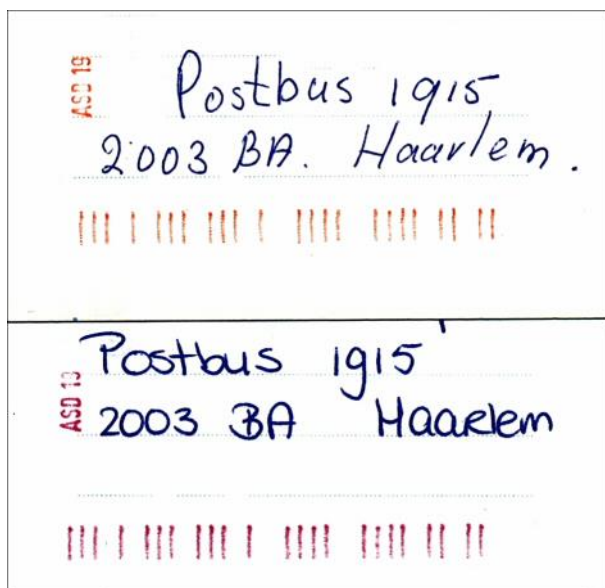 ASD 19
Postbus 1915
2003 BA. Haarlem.
ASD 13
Postbus 1915
2003 BA Haarlem